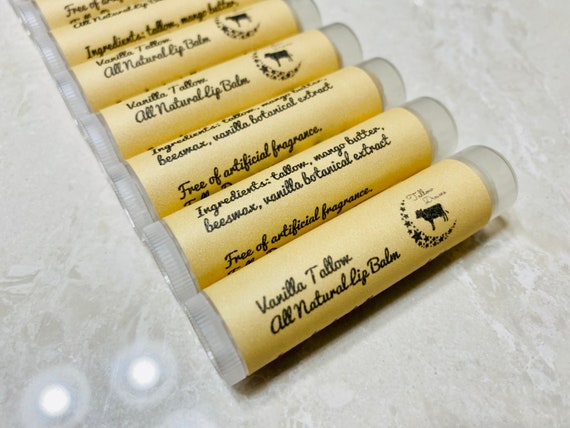 Free of artificial
All Natural Lip Balm
Ingredients: tallow, mango butter,
Vanilla Tallow
All Natural Lip Balm
Vanilla Tallow
All Natural Lip Balm
Ingredients: tallow, mango butter,
beeswax, vanilla botanical extract
Free of artificial fragrance.
Ingredients: tallow, mango butter,
beeswax, vanilla botanical extract
Free of artificial fragrance.
Tallow
Vanilla Tallow
All Natural Lip Balm